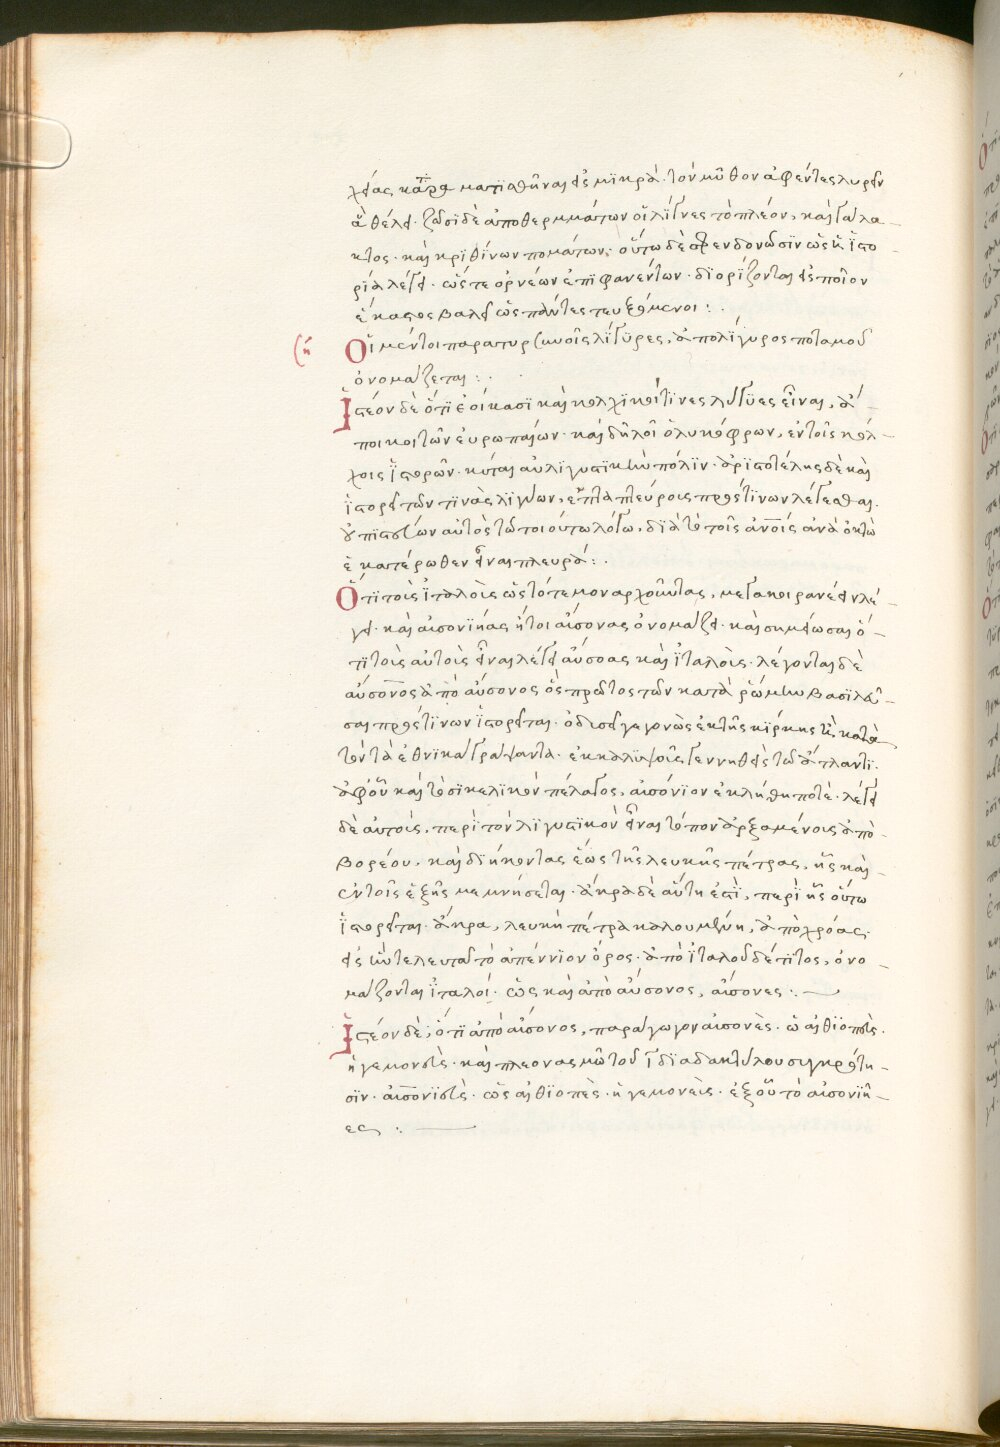 χείας καταρματισθῆναι εἰς μικρὰ. τὸν μῦθον ἀφέντες λυρεῖν
ἃ θέλει. ζῶσι δὲ ἀπὸ θερμμάτων οἱ λίγυες τὸ πλέον, καὶ γάλα-
κτος. καὶ κριθίνων πομάτων. οὕτω δὲ σφενδονῶσιν ὡς ἡ ἱστο-
ρία λέγει. ὥστε ὀρνέων ἐπιφανέντων. διορίζονται εἰς ποῖον
ἕκαστος βαλεῖ ὡς πάντες τευξόμενοι :.
Οἱ μέντοι παρὰ τυρσηνοῖς λίγυρες, ἀπὸ λίγυρος ποταμοῦ
ὀνομάζεται :.
Ἰστέον δὲ ὅτι ἐοίκασι καὶ κολχικοί τινες λίγυες εἶναι, ἄ-
ποικοι τῶν εὐρωπαίων. καὶ δηλοῖ ὁ λυκόφρων, ἐν τοῖς κόλ-
χοις ἱστορῶν. κύται αὐλιγυστικὴν πόλιν. ἀριστοτέλης δὲ καὶ
ἱστορεῖ τῶν τινὰς λιγύων, ἑπτὰ πλεύροις πρός τινων λέγεσθαι.
οὐ πιστεύων αὐτὸς τῶ τοιούτω λόγω, διὰ τὸ τοῖς ἀνοις ἀνὰ ὀκτὼ
ἑκατέρωθεν εἶναι πλευρά :.
Ὅτι τοῖς ἰταλοῖς ὡς τότε μοναρχοῦντας, μέγα κοιρανέειν λέ-
γει. καὶ αὐσονιῆας ἤτοι αὔσονας ὀνομάζει. καὶ σημείωσαι ὅ-
τι τοὺς αὐτοὺς εἶναι λέγει αὔσοας καὶ ἰταλοὺς. λέγονται δὲ
αὔσονος ἀπὸ αὔσονος ὃς πρῶτος τῶν κατὰ ῥώμην βασιλεῦ-
σαι πρός τινων ἱστορεῖται. ὀδυσεῖ γεγονὼς ἐκ τῆς κίρκης ἢ κατὰ
τὸν τὰ ἐθνικὰ γράψαντα. ἐκ καλυψοῦς γεννηθεὶς τῶ ἄτλαντι.
ἀφ' οὗ καὶ τὸ σικελικὸν πέλαγος, αὐσόνιον ἐκλήθη ποτέ. λέγει
δὲ αὐτοὺς, περὶ τὸν λιγυστικὸν εἶναι τόπον ἀρξαμένους ἀπὸ
βορέου, καὶ διήκοντας ἕως τῆς λευκῆς πέτρας, ἧς καὶ
ἐν τοῖς ἑξῆς μεμνήσεται. ἄκρα δὲ αὕτη ἐστὶ, περὶ ἧς οὕτω
ἱστορεῖται. ἄκρα, λευκὴ πέτρα καλουμένη, ἀπὸ χρόας.
εἰς ἣν τελευτᾶ τὸ ἀπέννιον ὄρος. ἀπὸ ἰταλοῦ δέ τινος, ὀνο-
μάζονται ἰταλοί. ὡς καὶ ἀπὸ αὔσονος, αὔσονες :.
Ἰστέον δὲ, ὅτι ἀπὸ αὔσονος, παράγωγον αὐσονὲς. ὦ αἰθίοπες.
ἡγεμονεὺς. καὶ πλεονασμῶ τοῦ ι διὰ δακτύλου συγκρότη-
σιν. αὐσονιεὺς. ὡς αἰθιοπεὺς. ἡγεμονεὺς. ἐξ οὗ τὸ αὐσονιῆ-
ες :.